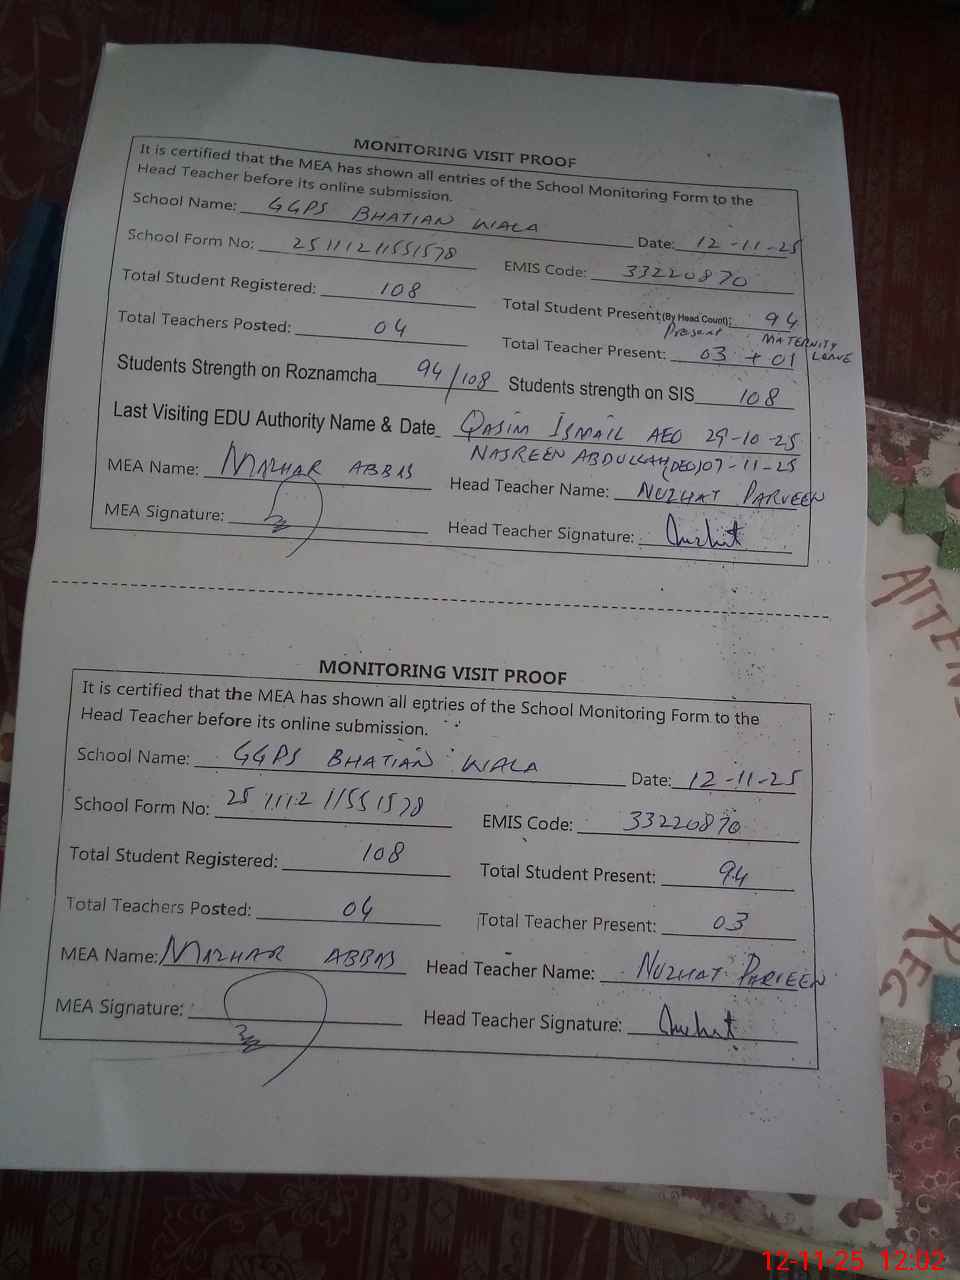 MONITORING VISIT PROOF
It is certified that the MEA has shown all entries of the School Monitoring Form to the
Head Teacher before its online submission.
School Name: GGPS BHATIAN WALA Date: 12-11-25
School Form No: 25111211551578 EMIS Code: 33220870
Total Student Registered: 108 Total Student Present(By Head Count): 94
Total Teachers Posted: 04 Total Teacher Present: Present 03 + 01 MATERNITY LEAVE
Students Strength on Roznamcha 94/108 Students strength on SIS 108
Last Visiting EDU Authority Name & Date QASIM ISMAIL AEO 29-10-25
NASREEN ABDULLAH (DEO) 07-11-25
MEA Name: MAZHAR ABBAS Head Teacher Name: NUZHAT PARVEEN
MEA Signature: Head Teacher Signature: Nuzhat
MONITORING VISIT PROOF
It is certified that the MEA has shown all entries of the School Monitoring Form to the
Head Teacher before its online submission.
School Name: GGPS BHATIAN WALA Date: 12-11-25
School Form No: 25111211551578 EMIS Code: 33220870
Total Student Registered: 108 Total Student Present: 94
Total Teachers Posted: 04 Total Teacher Present: 03
MEA Name: MAZHAR ABBAS Head Teacher Name: NUZHAT PARVEEN
MEA Signature: Head Teacher Signature: Nuzhat
ATTEN
REG
12-11-25 12:02